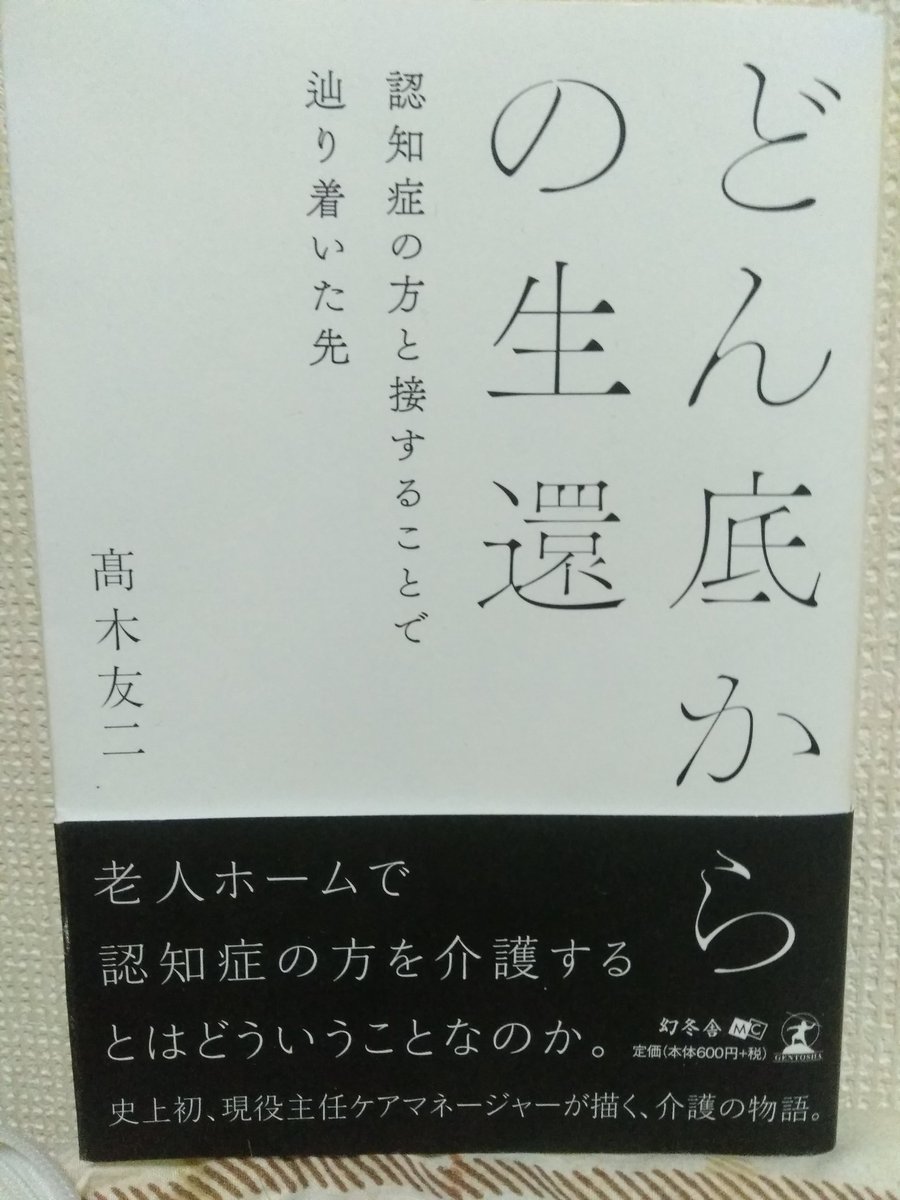 どん底から
の生還
認知症の方と接することで
辿り着いた先
髙木友二
老人ホームで
認知症の方を介護する
とはどういうことなのか。
幻冬舎 MC
定価(本体600円+税)
GENTOSHA
史上初、現役主任ケアマネージャーが描く、介護の物語。